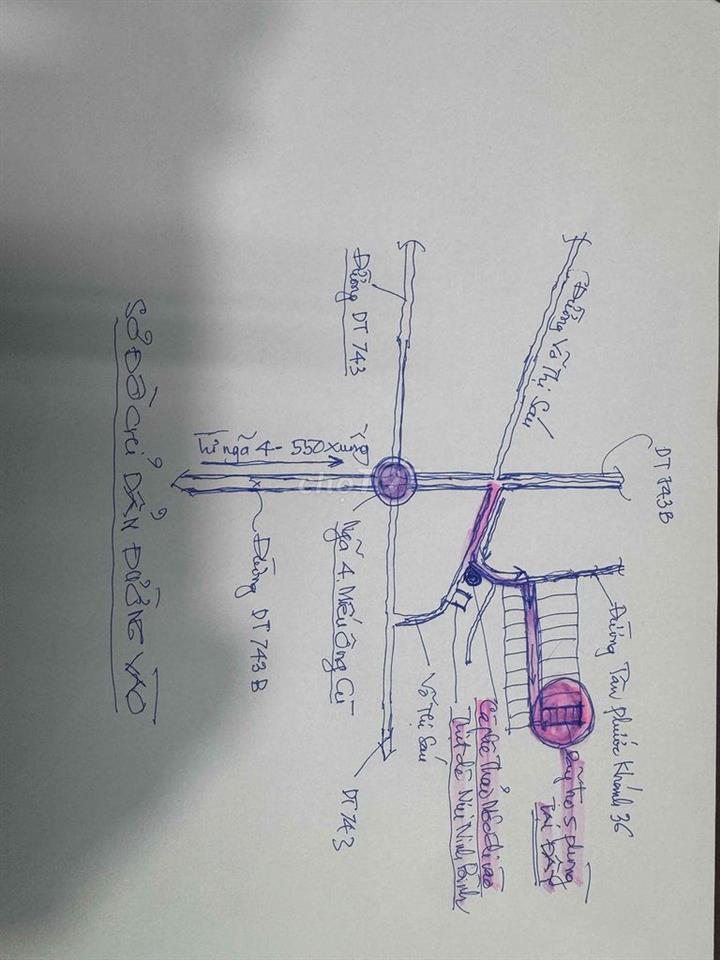 Đường Võ Thị Sáu
DT 743B
Đường DT 743
Từ ngã 4 - 550 xuống
Ngã 4. Miếu Ông Cù
Đường DT 743B
Võ Thị Sáu
DT 743
Đường Tân Phước Khánh 36
Cà phê Thảo Mộc đi vào
Thịt dê Núi Ninh Bình
Dãy trọ 5 phòng
TẠI ĐÂY
SƠ ĐỒ CHỈ DẪN ĐƯỜNG VÀO